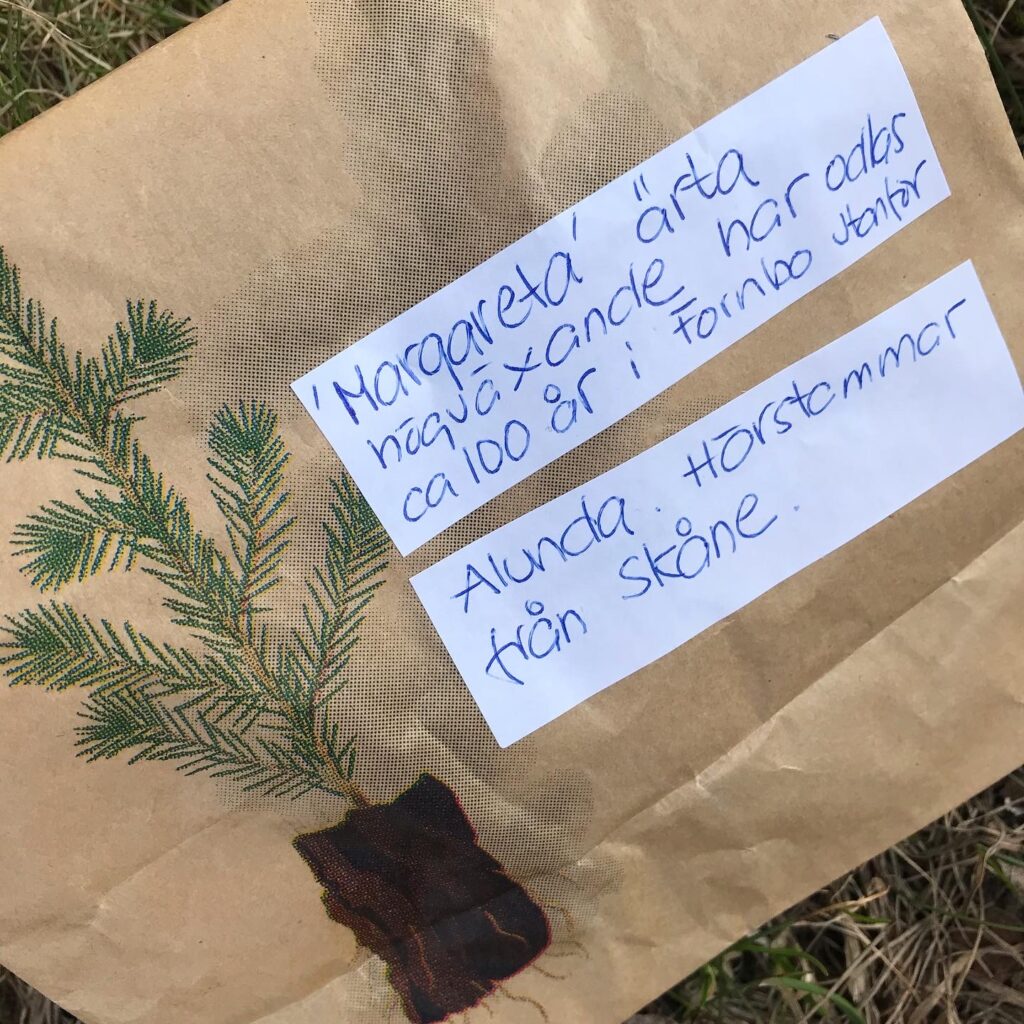 'Margareta' ärta
högväxande har odlats
ca 100 år i Fornbo utanför
Alunda. Hörstammar
från Skåne.